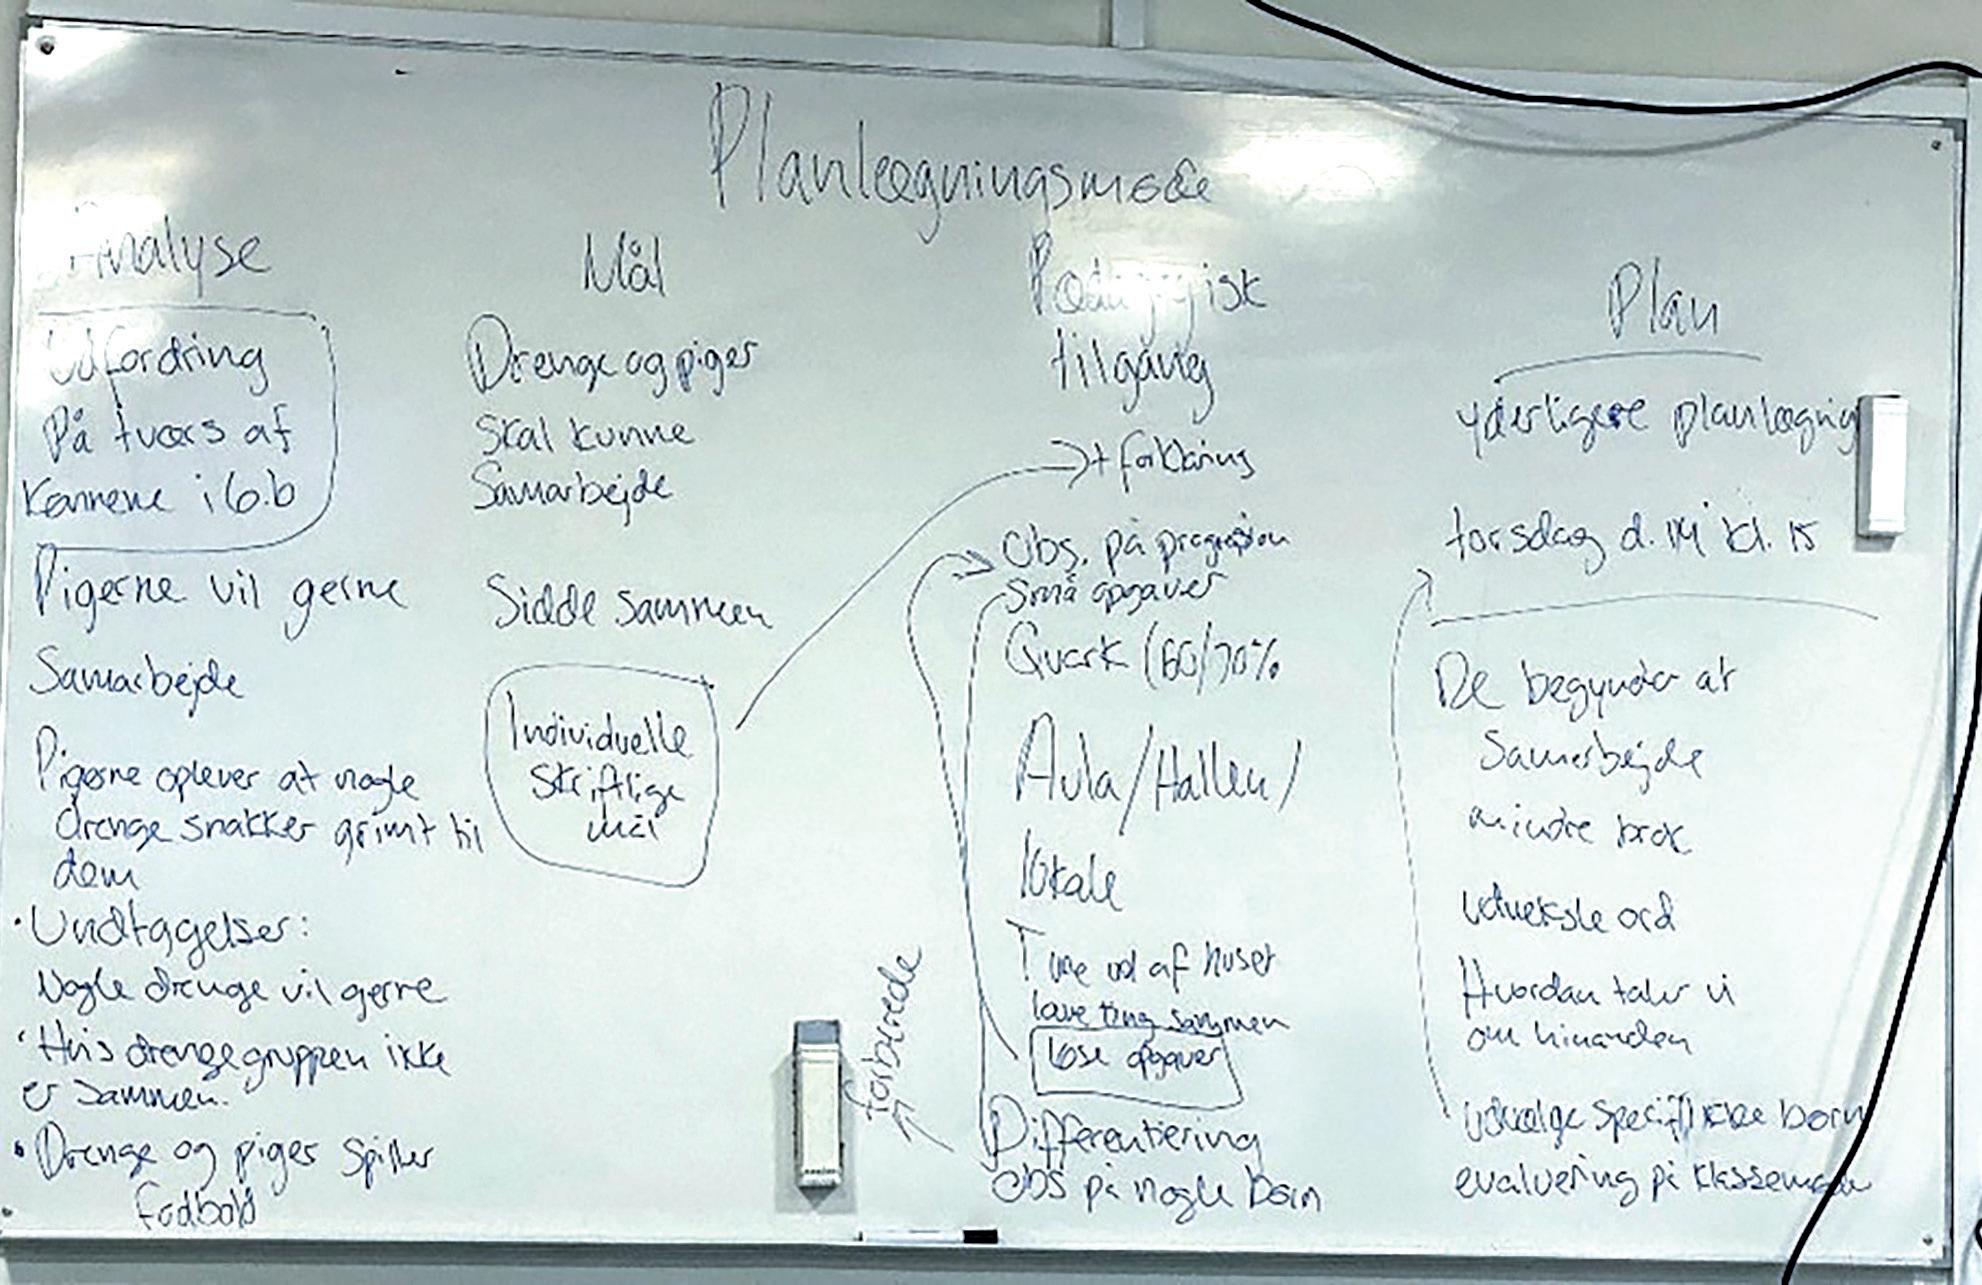 Planlægningsmøde
Analyse
Udfordring
På tværs af
Kønnene i 6.b
Pigerne vil gerne
Samarbejde
Pigerne oplever at nogle
drenge snakker grimt til
dem
• Undtagelser:
Nogle drenge vil gerne
• Hvis drengegruppen ikke
er sammen.
• Drenge og piger spiller
fodbold
Mål
Drenge og piger
Skal kunne
Samarbejde
Sidde sammen
Individuelle
skriftlige
mål
Pædagogisk
tilgang
+ forklaring
Obs. på progression
små opgaver
Quark (60/70%
Aula/Hallen/
lokale
Ture ud af huset
lave ting sammen
løse opgaver
Differentiering
Obs på nogle børn
forberede
Plan
yderligere planlægning
torsdag d. 14 kl. 15
De begynder at
Samarbejde
mindre brok
udveksle ord
Hvordan taler vi
om hinanden
udvælge specifikke børn
evaluering på klassemøde